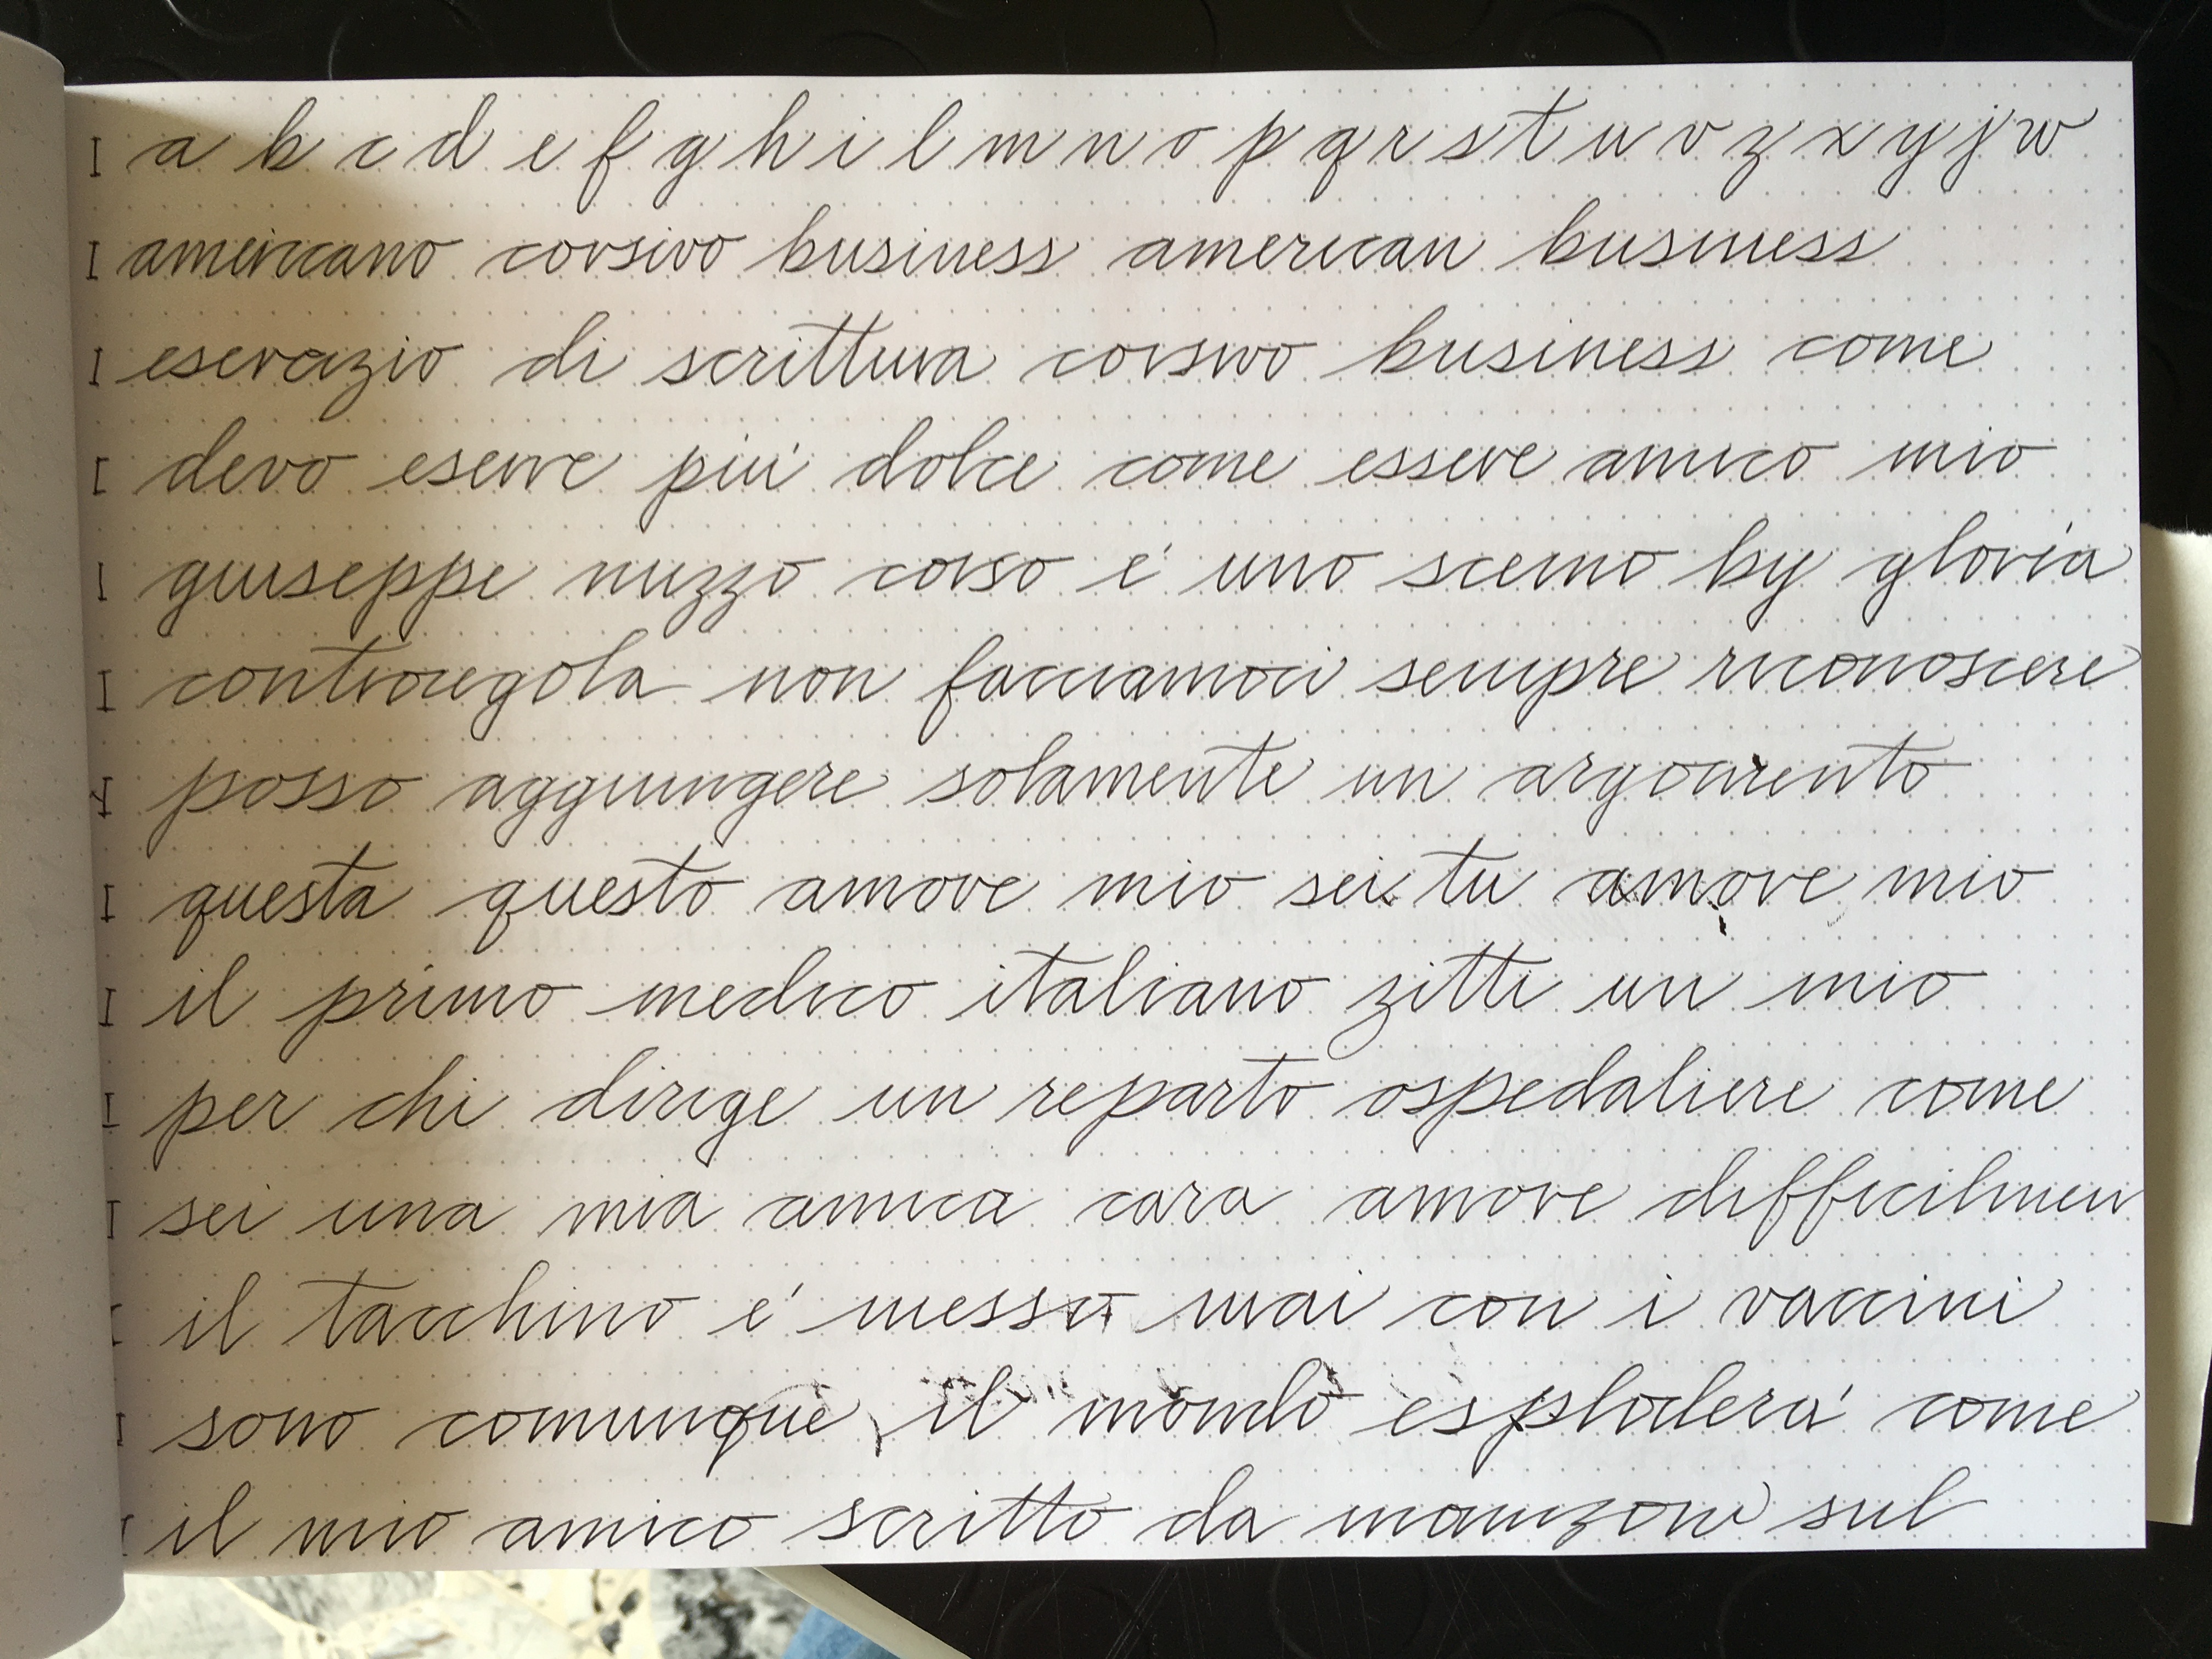 a b c d e f g h i l m n o p q r s t u v z x y j w
americano corsivo business american business
esercizio di scrittura corsivo business come
devo eserre più dolce come essere amico mio
giuseppe nuzzo corso é uno scemo by gloria
controregola non facciamoci sempre riconoscere
posso aggiungere solamente un argomento
questa questo amore mio sei tu amore mio
il primo medico italiano zitti un mio
per chi dirige un reparto ospedaliere come
sei una mia amica cara amore difficilmen
il tacchino é messo mai con i vaccini
sono comunque il mondo esploderá come
il mio amico scritto da manzoni sul